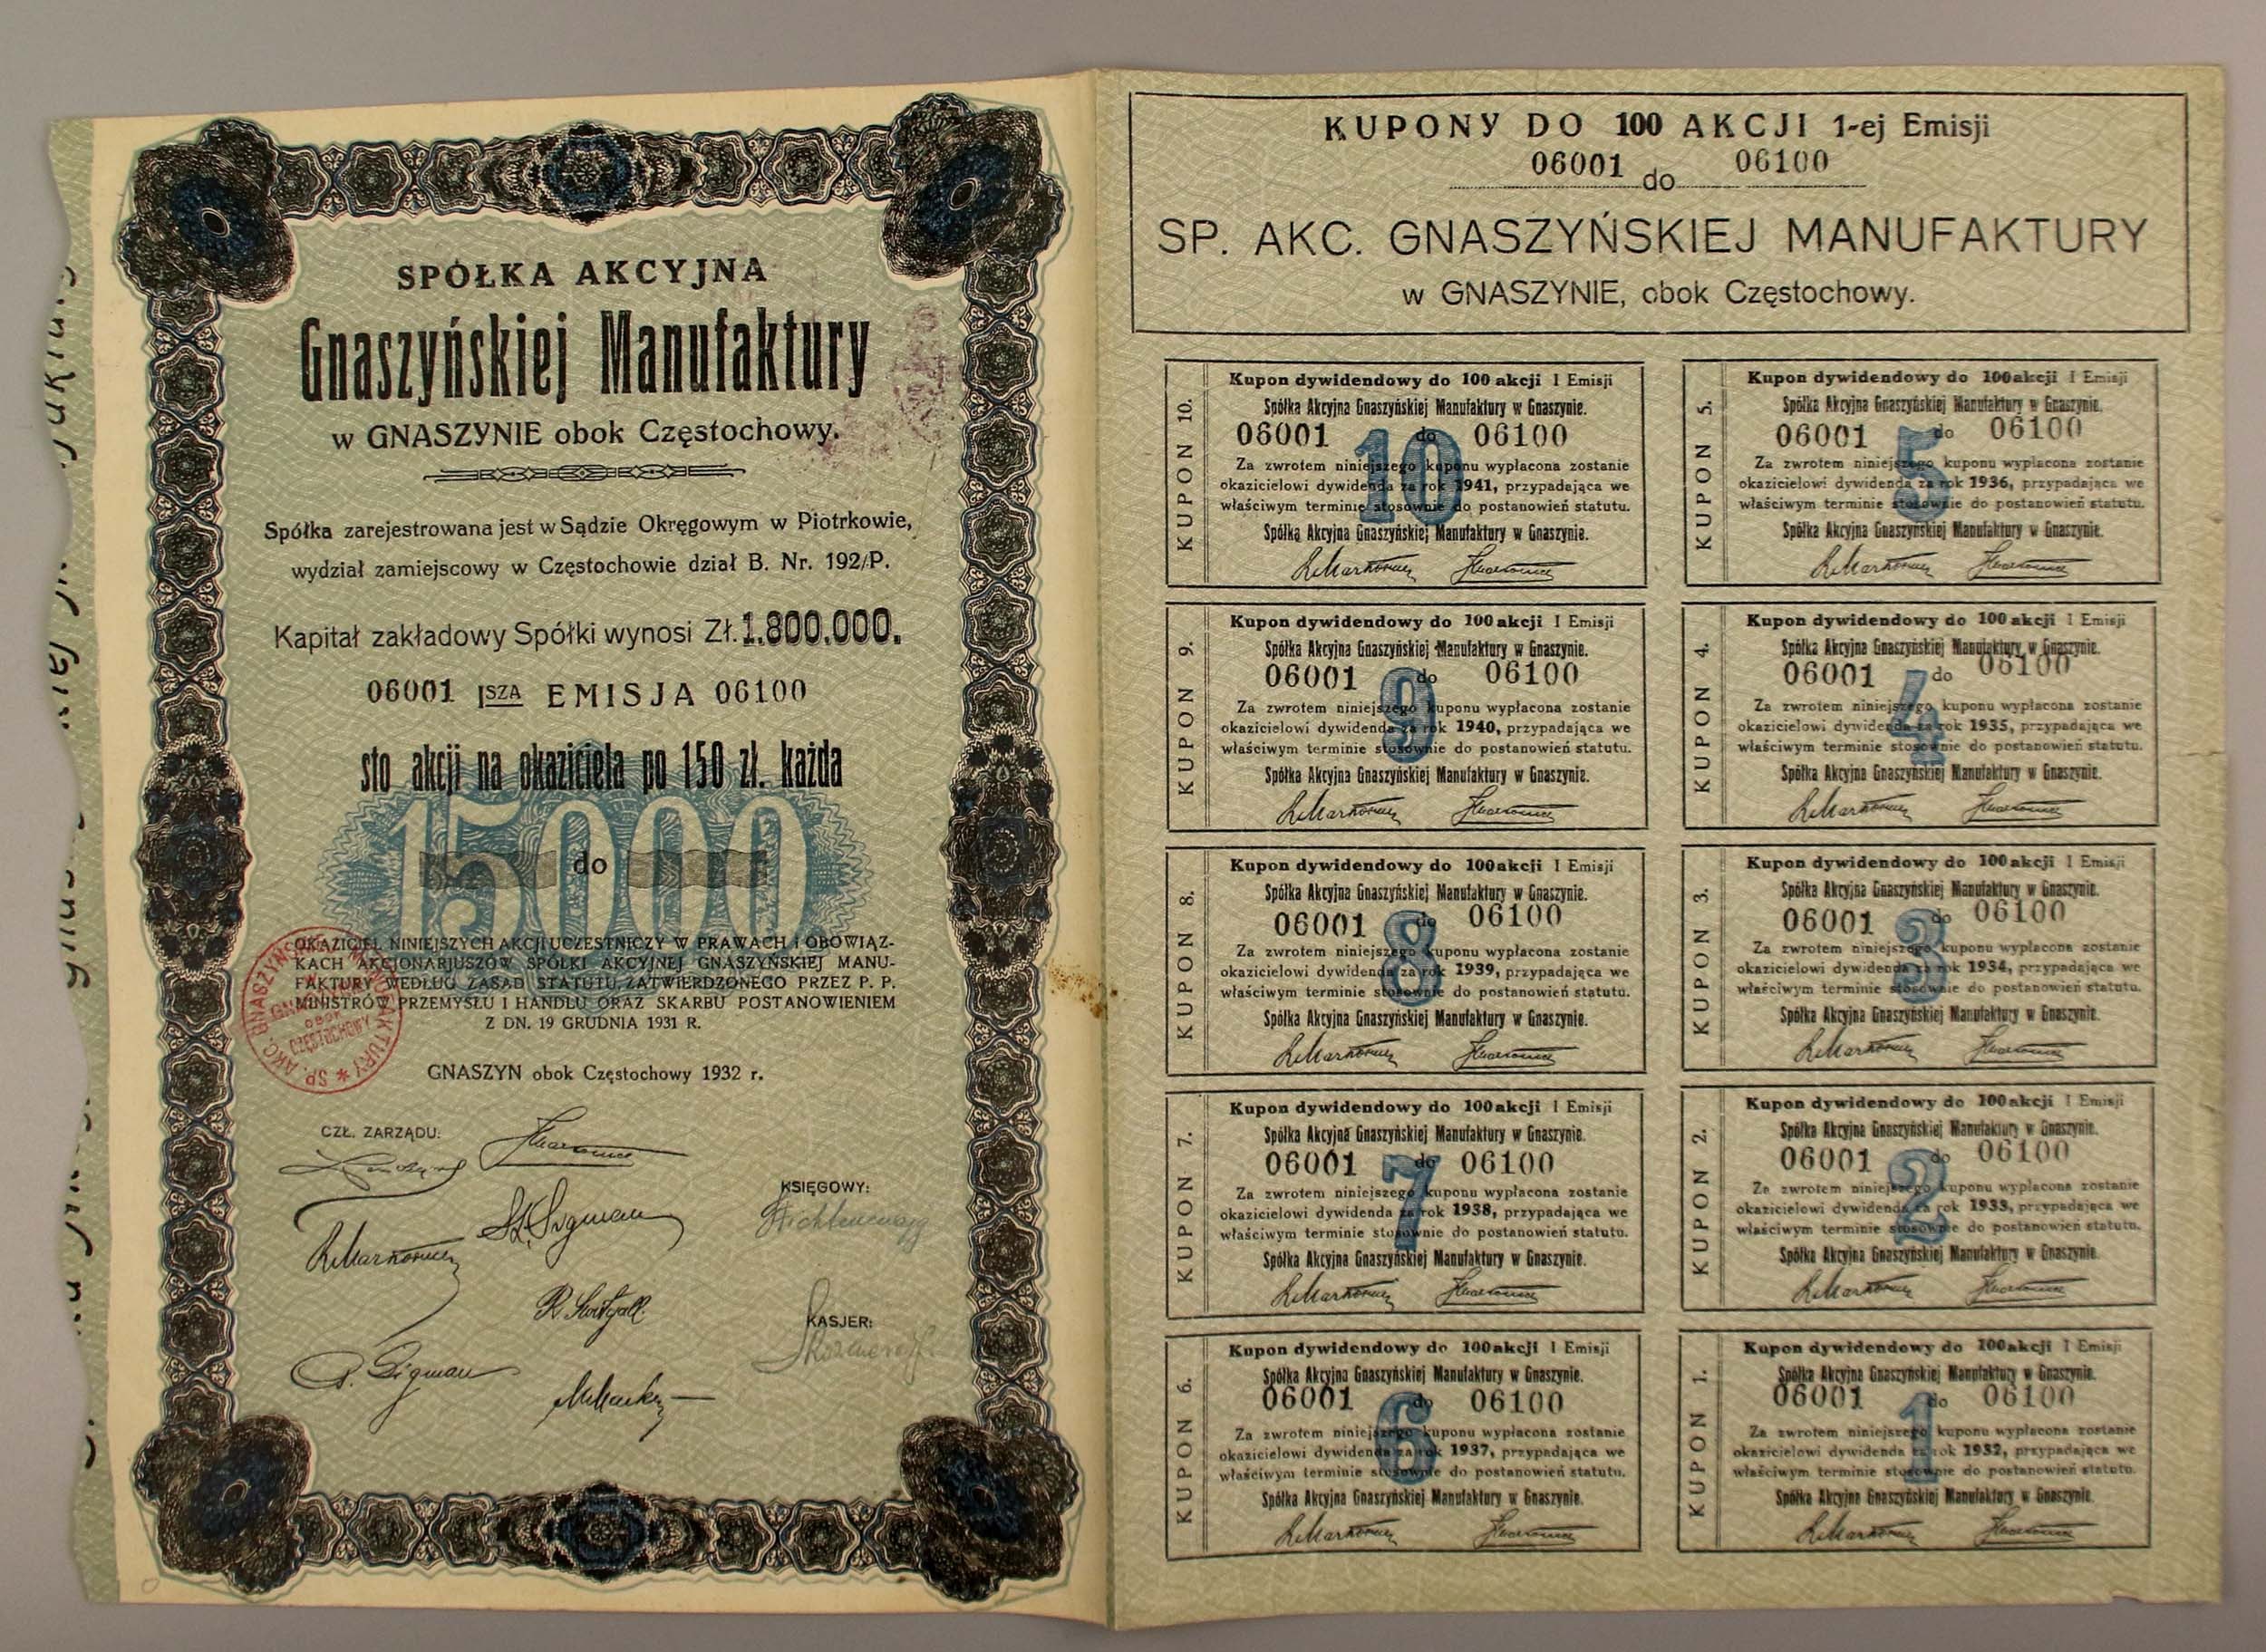 SPÓŁKA AKCYJNA
Gnaszyńskiej Manufaktury
w GNASZYNIE obok Częstochowy.
Spółka zarejestrowana jest w Sądzie Okręgowym w Piotrkowie,
wydział zamiejscowy w Częstochowie dział B. Nr. 192/P.
Kapitał zakładowy Spółki wynosi Zł. 1.800.000.
06001 ISZA EMISJA 06100
sto akcji na okaziciela po 150 zł. każda
15000
do
OKAZICIEL NINIEJSZYCH AKCJI UCZESTNICZY W PRAWACH I OBOWIĄZ-
KACH AKCJONARJUSZÓW SPÓŁKI AKCYJNEJ GNASZYŃSKIEJ MANU-
FAKTURY WEDŁUG ZASAD STATUTU, ZATWIERDZONEGO PRZEZ P. P.
MINISTRÓW PRZEMYSŁU I HANDLU ORAZ SKARBU POSTANOWIENIEM
Z DN. 19 GRUDNIA 1931 R.
SP. AKC. GNASZYŃSKIEJ MANUFAKTURY
OBOK
CZĘSTOCHOWY
GNASZYN obok Częstochowy 1932 r.
CZŁ. ZARZĄDU:
KSIĘGOWY:
KASJER:
KUPONY DO 100 AKCJI 1-ej Emisji
06001 do 06100
SP. AKC. GNASZYŃSKIEJ MANUFAKTURY
w GNASZYNIE, obok Częstochowy.
KUPON 10.
Kupon dywidendowy do 100 akcji I Emisji
Spółka Akcyjna Gnaszyńskiej Manufaktury w Gnaszynie.
06001 do 06100
10
Za zwrotem niniejszego kuponu wypłacona zostanie
okazicielowi dywidenda za rok 1941, przypadająca we
właściwym terminie stosownie do postanowień statutu.
Spółka Akcyjna Gnaszyńskiej Manufaktury w Gnaszynie.
KUPON 5.
Kupon dywidendowy do 100 akcji I Emisji
Spółka Akcyjna Gnaszyńskiej Manufaktury w Gnaszynie.
06001 do 06100
5
Za zwrotem niniejszego kuponu wypłacona zostanie
okazicielowi dywidenda za rok 1936, przypadająca we
właściwym terminie stosownie do postanowień statutu.
Spółka Akcyjna Gnaszyńskiej Manufaktury w Gnaszynie.
KUPON 9.
Kupon dywidendowy do 100 akcji I Emisji
Spółka Akcyjna Gnaszyńskiej Manufaktury w Gnaszynie.
06001 do 06100
9
Za zwrotem niniejszego kuponu wypłacona zostanie
okazicielowi dywidenda za rok 1940, przypadająca we
właściwym terminie stosownie do postanowień statutu.
Spółka Akcyjna Gnaszyńskiej Manufaktury w Gnaszynie.
KUPON 4.
Kupon dywidendowy do 100 akcji I Emisji
Spółka Akcyjna Gnaszyńskiej Manufaktury w Gnaszynie.
06001 do 06100
4
Za zwrotem niniejszego kuponu wypłacona zostanie
okazicielowi dywidenda za rok 1935, przypadająca we
właściwym terminie stosownie do postanowień statutu.
Spółka Akcyjna Gnaszyńskiej Manufaktury w Gnaszynie.
KUPON 8.
Kupon dywidendowy do 100 akcji I Emisji
Spółka Akcyjna Gnaszyńskiej Manufaktury w Gnaszynie.
06001 do 06100
8
Za zwrotem niniejszego kuponu wypłacona zostanie
okazicielowi dywidenda za rok 1939, przypadająca we
właściwym terminie stosownie do postanowień statutu.
Spółka Akcyjna Gnaszyńskiej Manufaktury w Gnaszynie.
KUPON 3.
Kupon dywidendowy do 100 akcji I Emisji
Spółka Akcyjna Gnaszyńskiej Manufaktury w Gnaszynie.
06001 do 06100
3
Za zwrotem niniejszego kuponu wypłacona zostanie
okazicielowi dywidenda za rok 1934, przypadająca we
właściwym terminie stosownie do postanowień statutu.
Spółka Akcyjna Gnaszyńskiej Manufaktury w Gnaszynie.
KUPON 7.
Kupon dywidendowy do 100 akcji I Emisji
Spółka Akcyjna Gnaszyńskiej Manufaktury w Gnaszynie.
06001 do 06100
7
Za zwrotem niniejszego kuponu wypłacona zostanie
okazicielowi dywidenda za rok 1938, przypadająca we
właściwym terminie stosownie do postanowień statutu.
Spółka Akcyjna Gnaszyńskiej Manufaktury w Gnaszynie.
KUPON 2.
Kupon dywidendowy do 100 akcji I Emisji
Spółka Akcyjna Gnaszyńskiej Manufaktury w Gnaszynie.
06001 do 06100
2
Za zwrotem niniejszego kuponu wypłacona zostanie
okazicielowi dywidenda za rok 1933, przypadająca we
właściwym terminie stosownie do postanowień statutu.
Spółka Akcyjna Gnaszyńskiej Manufaktury w Gnaszynie.
KUPON 6.
Kupon dywidendowy do 100 akcji I Emisji
Spółka Akcyjna Gnaszyńskiej Manufaktury w Gnaszynie.
06001 do 06100
6
Za zwrotem niniejszego kuponu wypłacona zostanie
okazicielowi dywidenda za rok 1937, przypadająca we
właściwym terminie stosownie do postanowień statutu.
Spółka Akcyjna Gnaszyńskiej Manufaktury w Gnaszynie.
KUPON 1.
Kupon dywidendowy do 100 akcji I Emisji
Spółka Akcyjna Gnaszyńskiej Manufaktury w Gnaszynie.
06001 do 06100
1
Za zwrotem niniejszego kuponu wypłacona zostanie
okazicielowi dywidenda za rok 1932, przypadająca we
właściwym terminie stosownie do postanowień statutu.
Spółka Akcyjna Gnaszyńskiej Manufaktury w Gnaszynie.